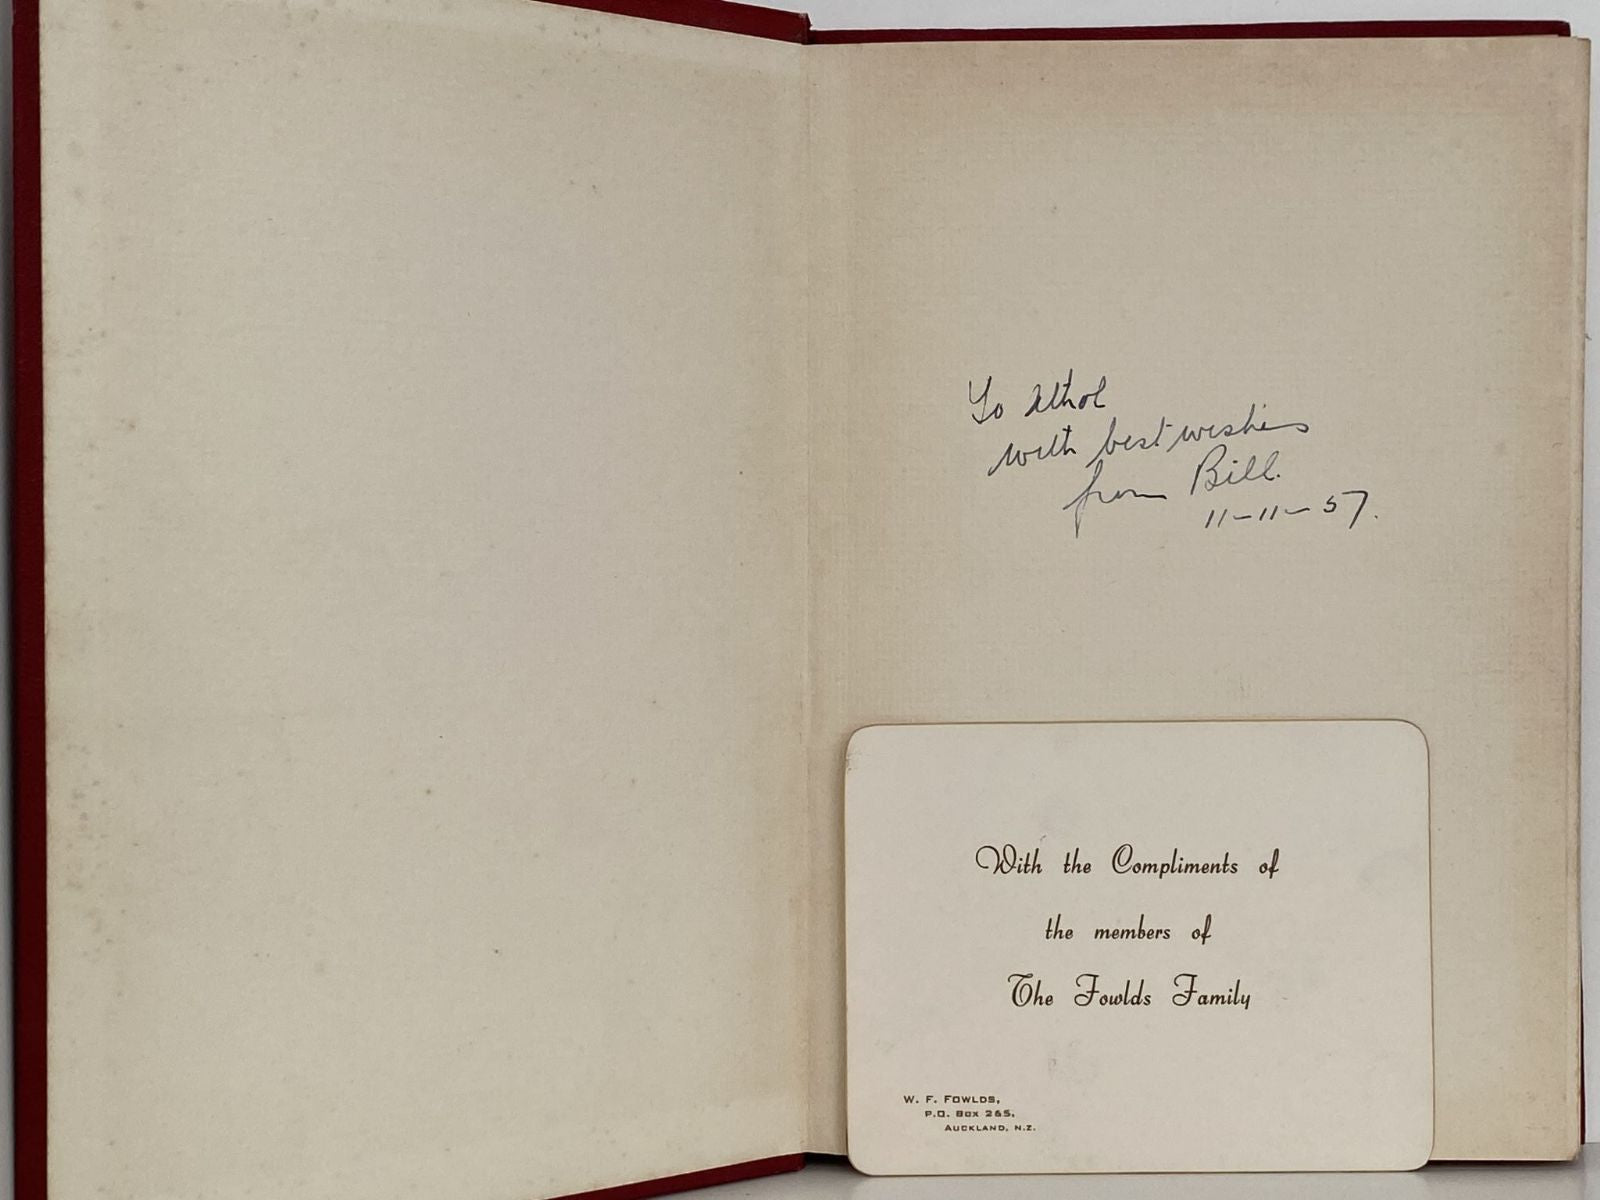 To Athol
with best wishes
from Bill.
11-11-57.
With the Compliments of
the members of
The Fowlds Family
W. F. FOWLDS,
P.O. BOX 265,
AUCKLAND, N.Z.